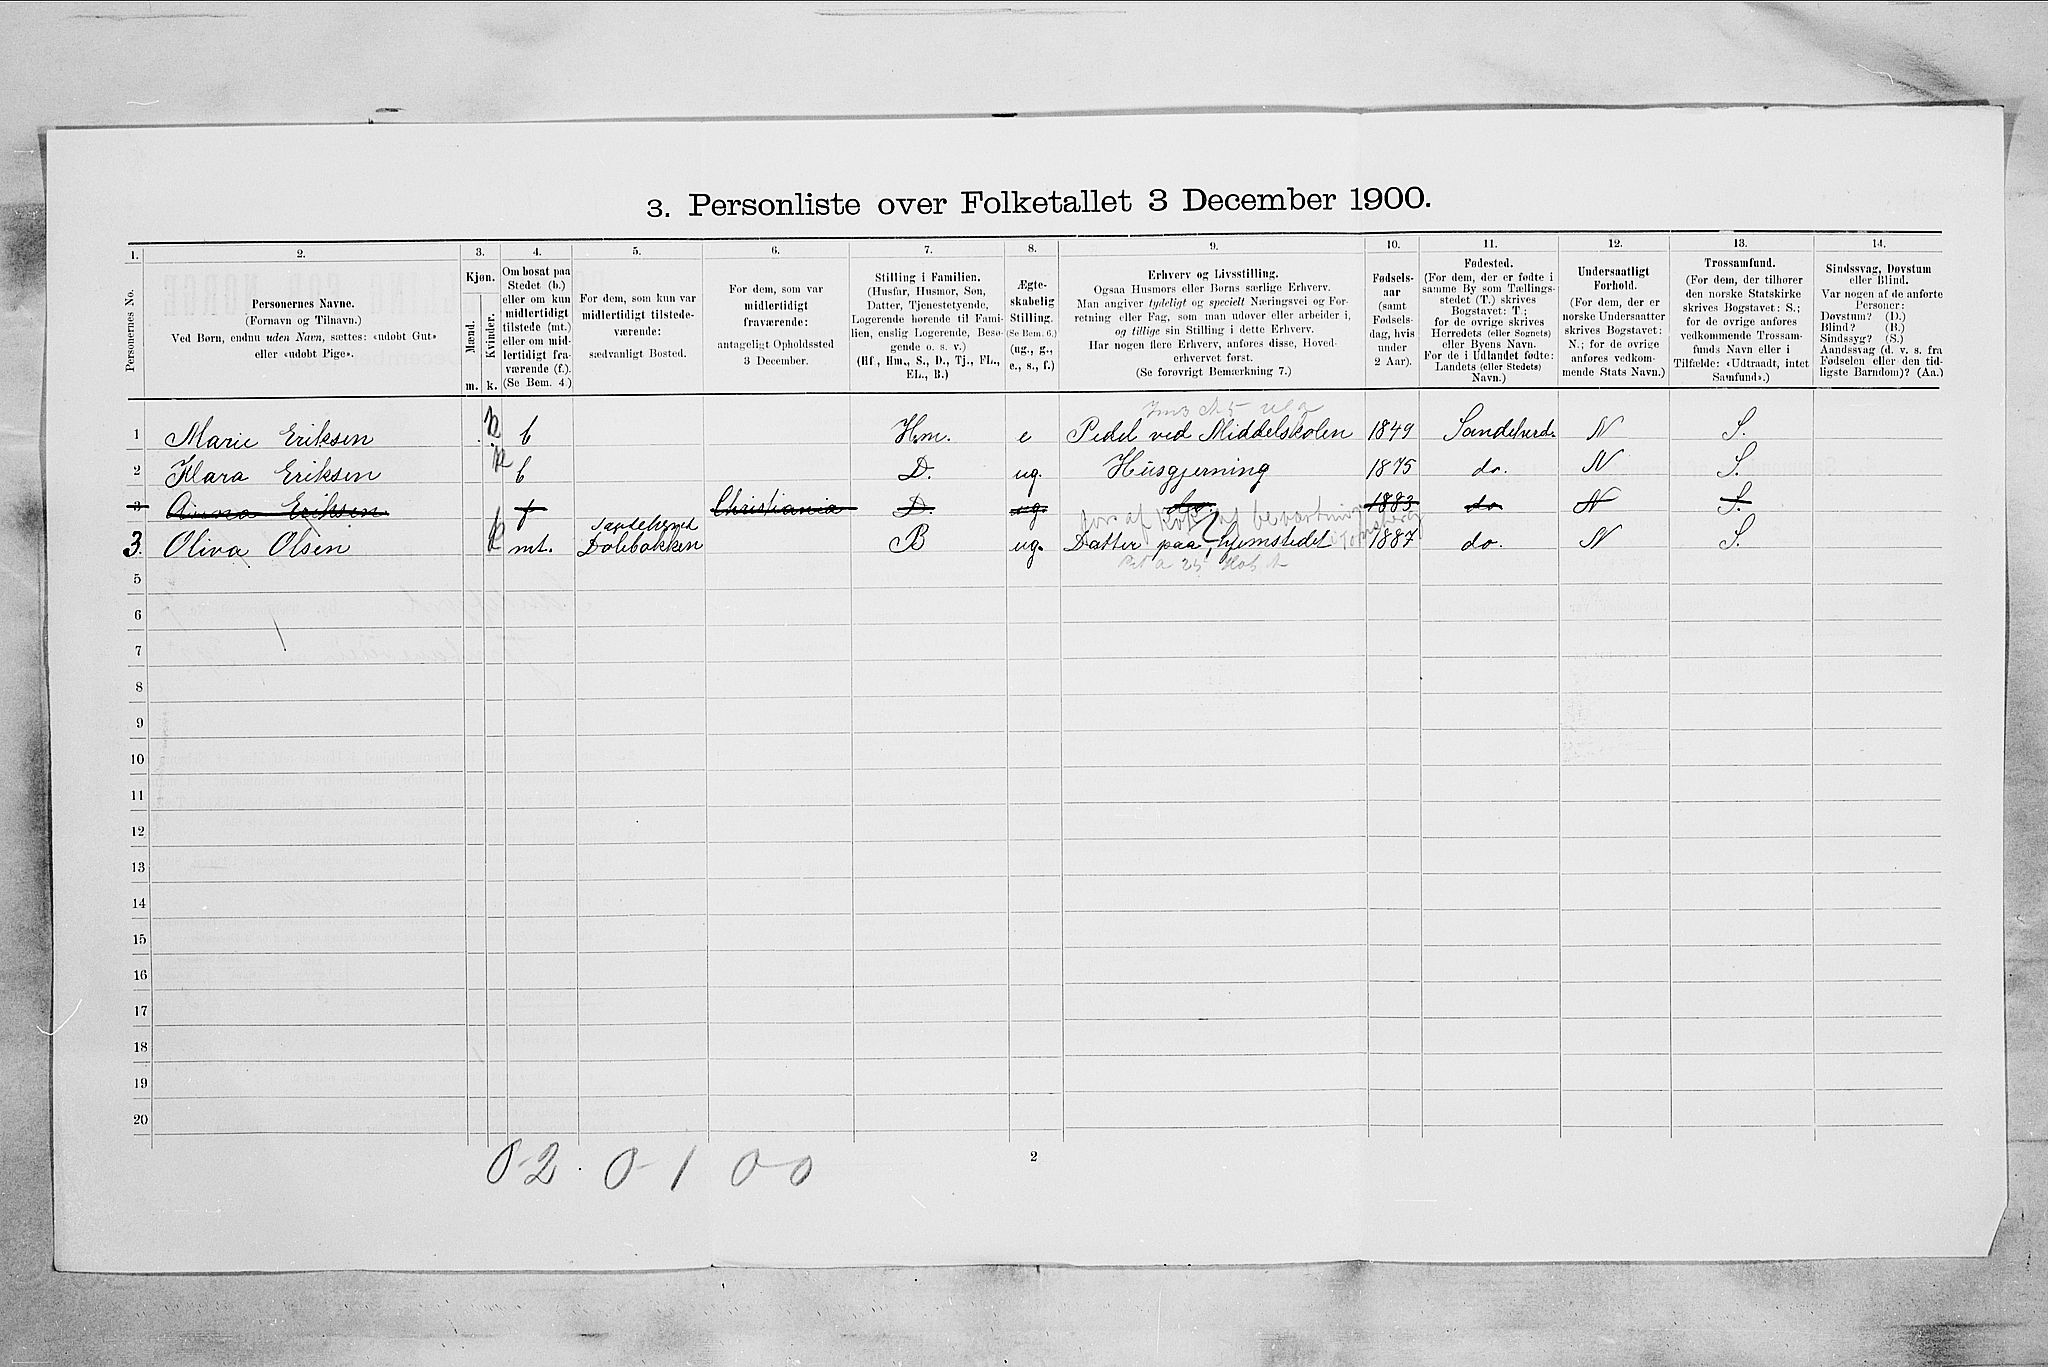 3. Personliste over Folketallet 3 December 1900.
1. 2. 3. 4. 5. 6. 7. 8. 9. 10. 11. 12. 13. 14.
Personernes No.
Personernes Navne.
(Fornavn og Tilnavn.)
Ved Børn, endnu uden Navn, sættes: «udøbt Gut»
eller «udøbt Pige».
Kjøn.
Mænd.
Kvinder.
m. k.
Om bosat paa
Stedet (b.)
eller om kun
midlertidigt
tilstede (mt.)
eller om mid-
lertidigt fra-
værende (f.)
(Se Bem. 4.)
For dem, som kun var
midlertidigt tilstede-
værende:
sædvanligt Bosted.
For dem, som var
midlertidigt
fraværende:
antageligt Opholdssted
3 December.
Stilling i Familien.
(Husfar, Husmor, Søn,
Datter, Tjenestetyende,
Logerende hørende til Fami-
lien, enslig Logerende, Besø-
gende o. s. v.)
(Hf., Hm., S., D., Tj., FL.,
EL., B.)
Ægte-
skabelig
Stilling.
(Se Bem. 6.)
(ug., g.,
e., s., f.)
Erhverv og Livsstilling.
Ogsaa Husmors eller Børns særlige Erhverv.
Man angiver tydeligt og specielt Næringsvei og For-
retning eller Fag, som man udøver eller arbeider i,
og tillige sin Stilling i dette Erhverv.
Har nogen flere Erhverv, anføres disse, Hoved-
erhvervet først.
(Se forøvrigt Bemærkning 7.)
Fødsels-
aar
(samt
Fødsels-
dag, hvis
under
2 Aar).
Fødested.
(For dem, der er fødte i
samme By som Tællings-
stedet (T.) skrives
Bogstavet: T;
for de øvrige skrives
Herredets (eller Sognets)
eller Byens Navn.
For de i Udlandet fødte:
Landets (eller Stedets)
Navn.)
Undersaatligt
Forhold.
(For dem, der er
norske Undersaatter
skrives Bogstavet:
N.; for de øvrige
anføres vedkom-
mende Stats Navn.)
Trossamfund.
(For dem, der tilhører
den norske Statskirke
skrives Bogstavet: S.;
for de øvrige anføres
vedkommende Trossam-
funds Navn eller i
Tilfælde: «Udtraadt, intet
Samfund».)
Sindssvag, Døvstum
eller Blind.
Var nogen af de anførte
Personer:
Døvstum? (D.)
Blind? (B.)
Sindssyg? (S.)
Aandssvag (d. v. s. fra
Fødselen eller den tid-
ligste Barndom)? (Aa.)
1 Marie Eriksen k b Hm. e Pedel ved Middelskolen 1849 Sandeherd. N S.
2 Klara Eriksen k b D. ug. Husgjerning 1875 do. N S.
3 Anna Eriksen f Christiania D. ug. do. 1883 do N S.
Sandeherred
3. Oliva Olsen k mt. Dølebakken B ug. Datter paa hjemstedet 1887 do. N S.
5
6
7
8
9
10
11
12
13
14
15
16
17
18
19
20
0-2 0-1 0-0
2